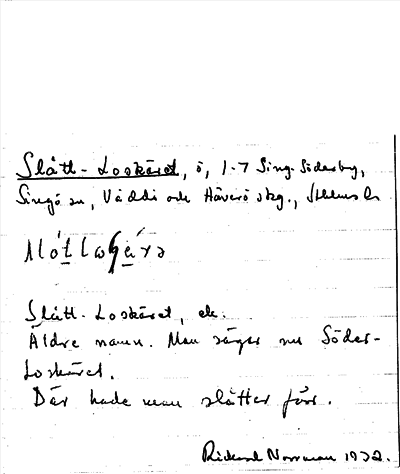 Slått-Loskäret, ö, 1-7 Sing-Söderby,
Singö sn, Väddö och Häverö skg., Sthlms l.
Slått-Loskäret, ek.
Äldre namn. Man säger nu Söder-
Loskäret.
Där hade man slåtter förr.
Rickard Norrman 1932.